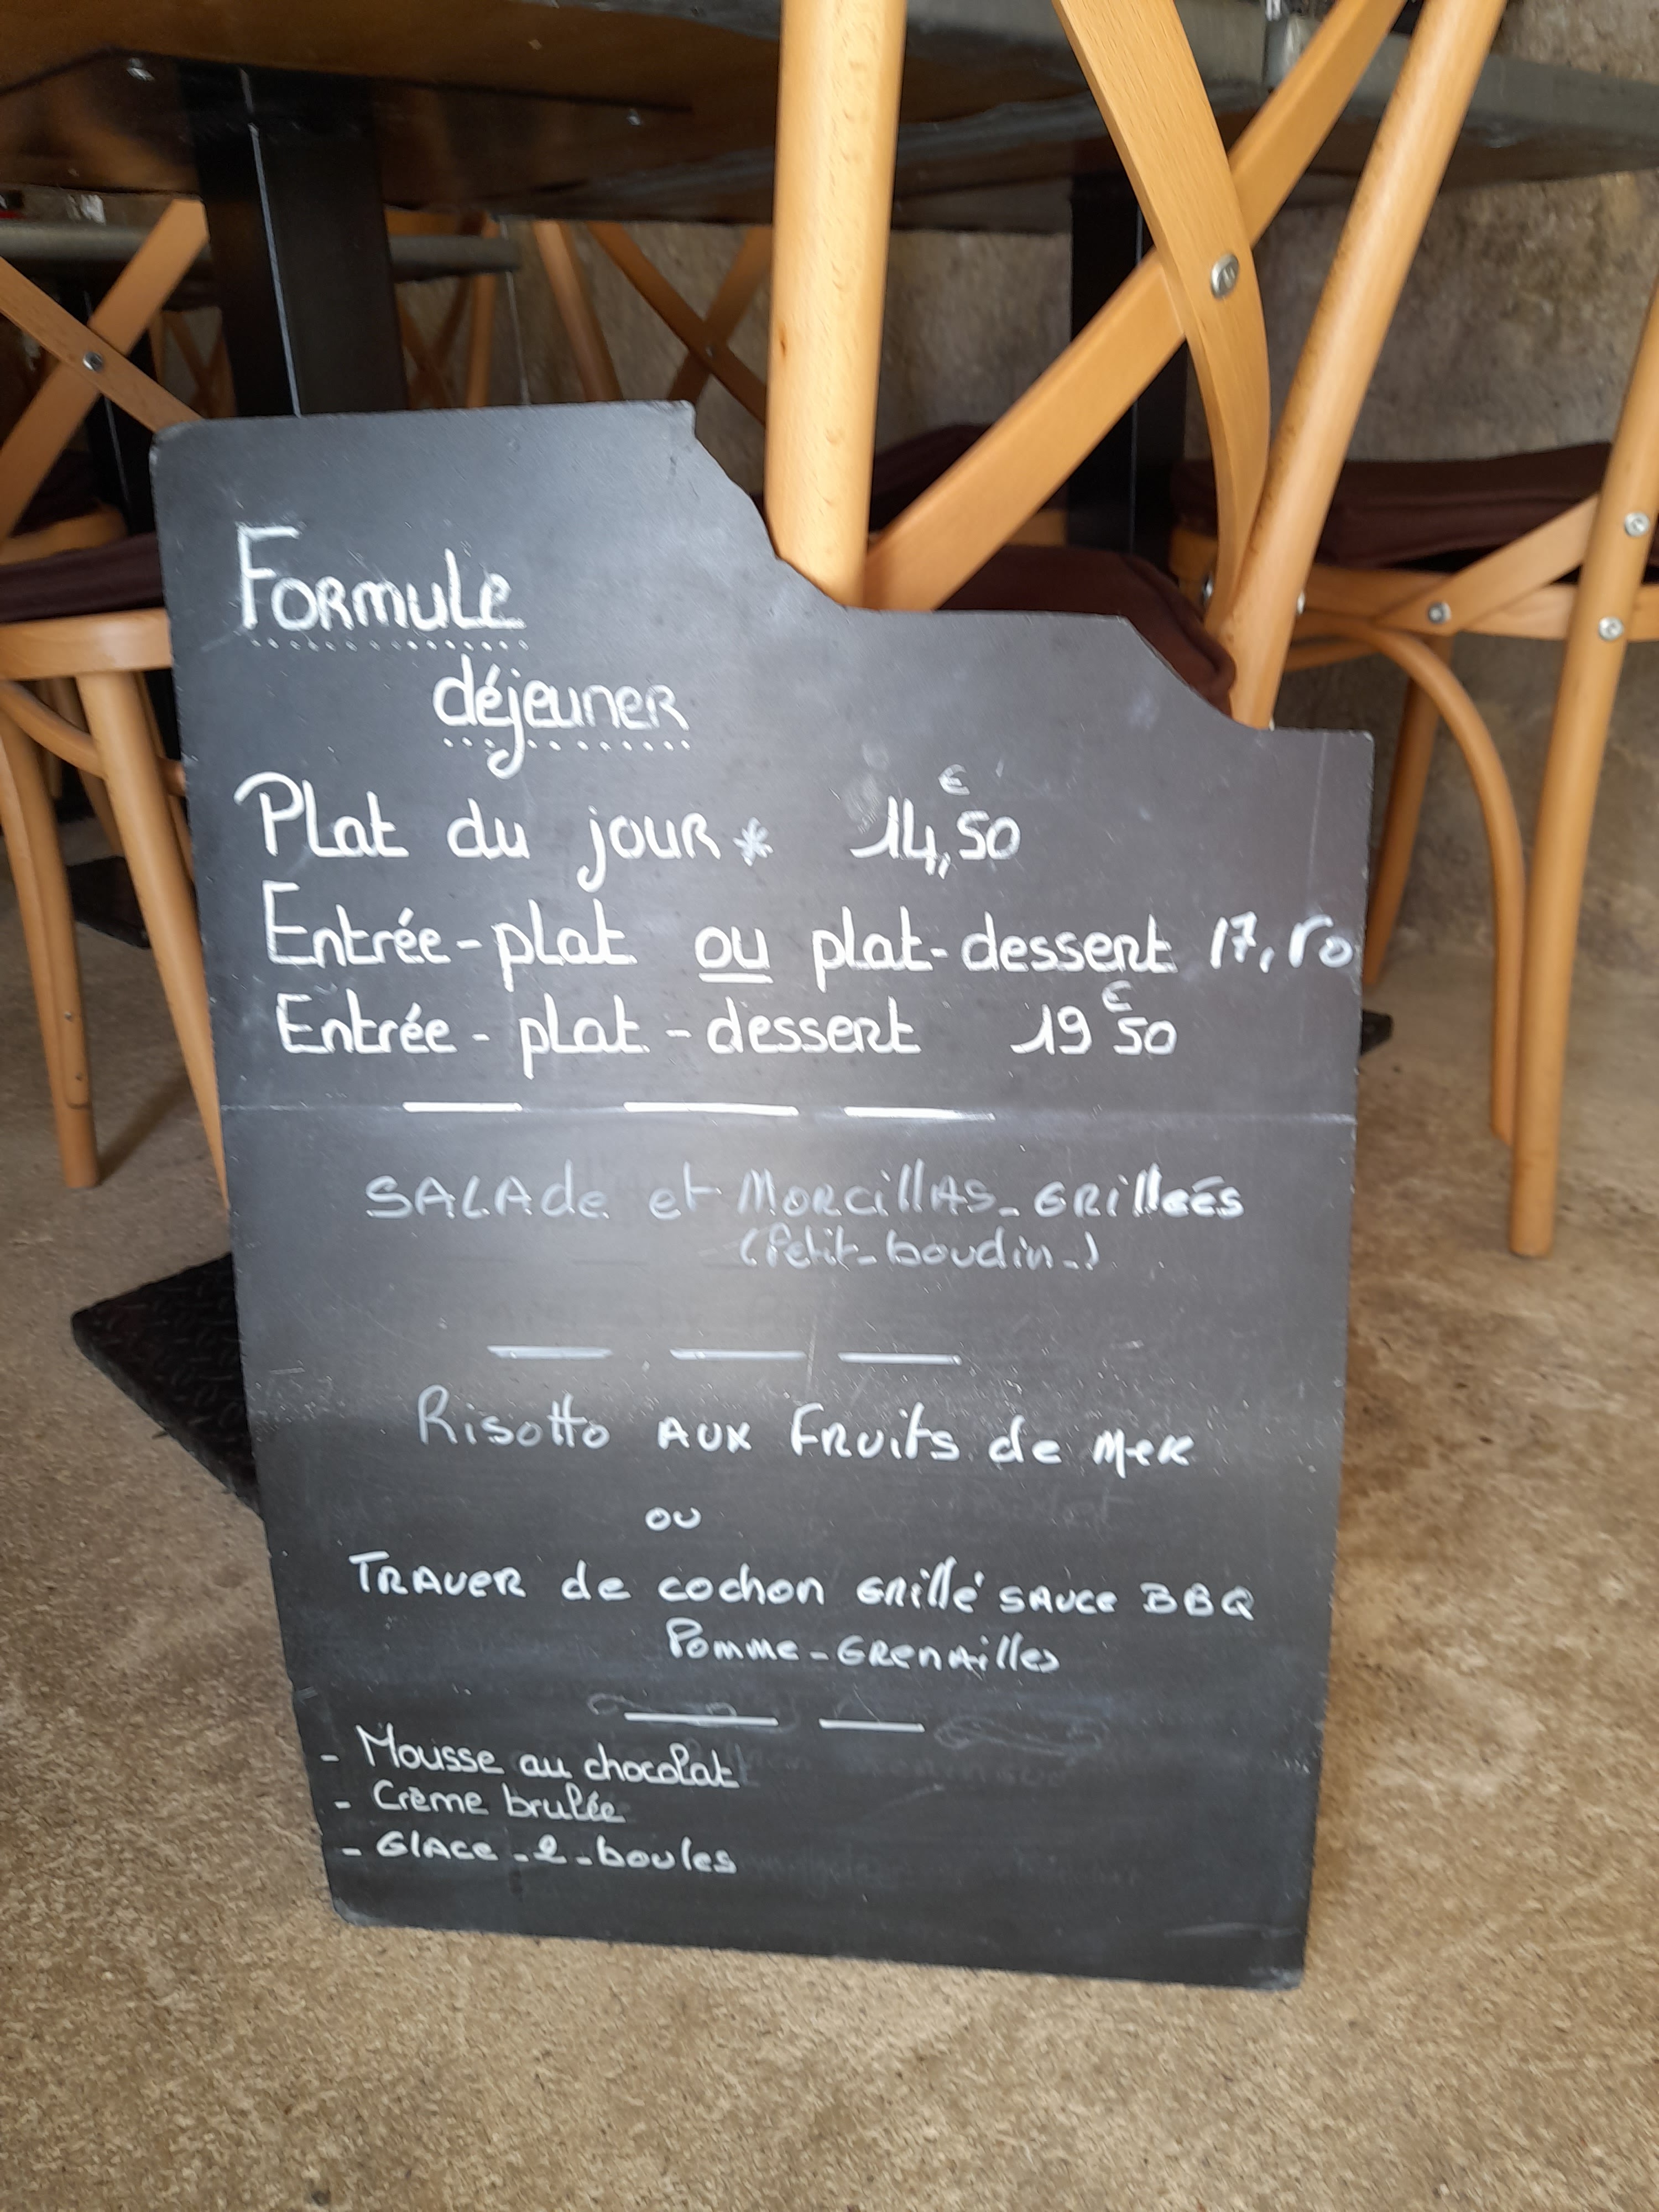 Formule
déjeuner
Plat du jour * 14,€50
Entrée-plat ou plat-dessent 17,50
Entrée - plat - dessert 19€50
SALAde et MORcillAS_GRilleés
(Petit_boudin_)
Risotto AUX FRuits de MER
ou
TRAVER de cochon GRillé SAUCE BBQ
Pomme_GRenAilles
- Mousse au chocolat
- Crème brulée
- GlAce_2_boules